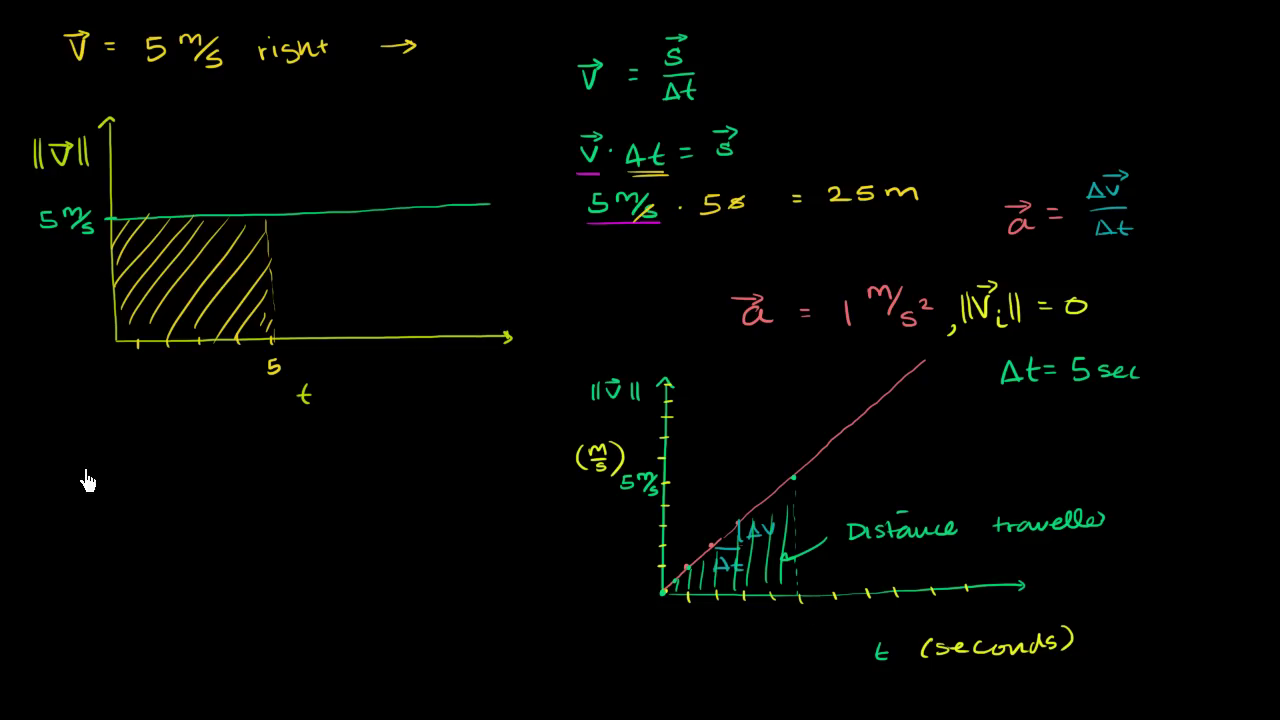 v⃗ = 5 m/s right →
‖v⃗‖
5 m/s
5
t
v⃗ = s⃗/Δt
v⃗ · Δt = s⃗
5 m/s · 5s = 25 m
a⃗ = Δv⃗/Δt
a⃗ = 1 m/s², ‖v⃗ᵢ‖ = 0
Δt = 5 sec
‖v⃗‖
(m/s)
5 m/s
Δv
Δt
Distance travelled
t (seconds)